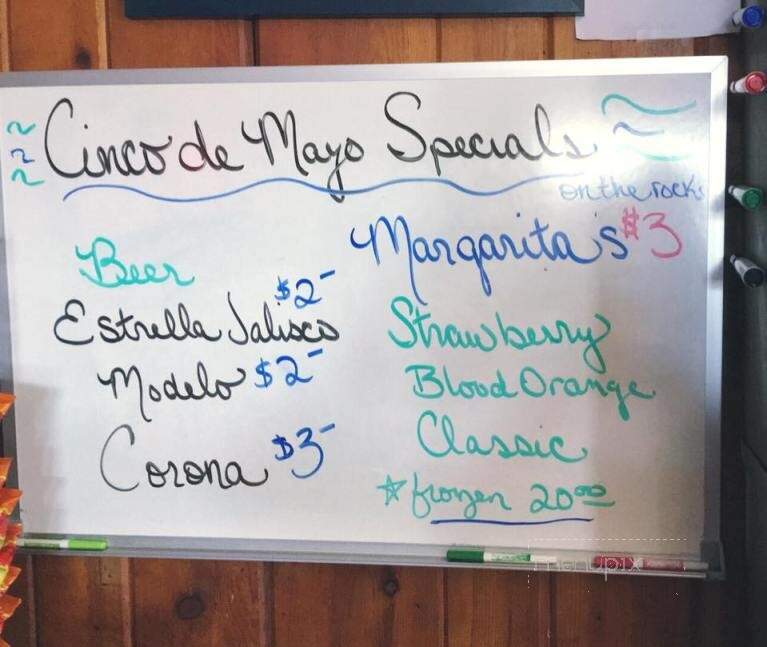 Cinco de Mayo Specials
on the rocks
Beer
$2-
Estrella Jalisco
Modelo $2-
Corona $3-
Margarita's $3
Strawberry
Blood Orange
Classic
☆frozen 20.00
menupix